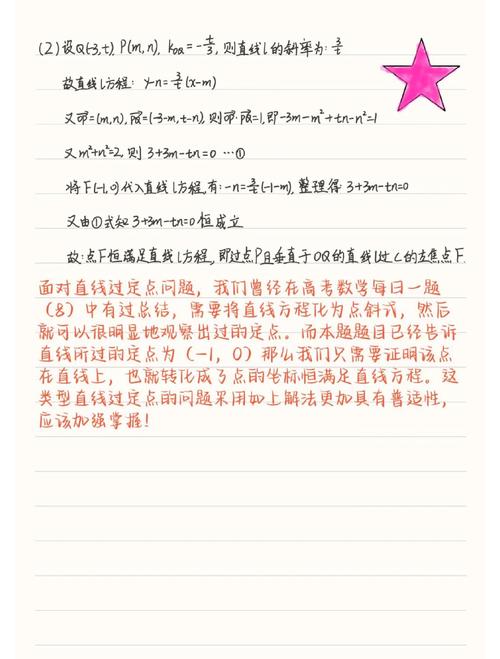 (2)设Q(-3,t), P(m,n), k_{OQ}=-\frac{t}{3}, 则直线l的斜率为: \frac{3}{t}
故直线l方程: y-n=\frac{3}{t}(x-m)
又\vec{OP}=(m,n), \vec{PQ}=(-3-m,t-n), 则\vec{OP}·\vec{PQ}=1, 即-3m-m²+tn-n²=1
又m²+n²=2, 则 3+3m-tn=0 …①
将F(-1,0)代入直线l方程,有: -n=\frac{3}{t}(-1-m), 整理得 3+3m-tn=0
又由①式知 3+3m-tn=0恒成立
故:点F恒满足直线l方程, 即过点P且垂直于OQ的直线l过C的左焦点F.
面对直线过定点问题，我们曾经在高考数学每日一题
（8）中有过总结，需要将直线方程化为点斜式，然后
就可以很明显地观察出过的定点。而本题题目已经告诉
直线所过的定点为（-1，0）那么我们只需要证明该点
在直线上，也就转化成了点的坐标恒满足直线方程。这
类型直线过定点的问题采用如上解法更加具有普适性，
应该加强掌握！